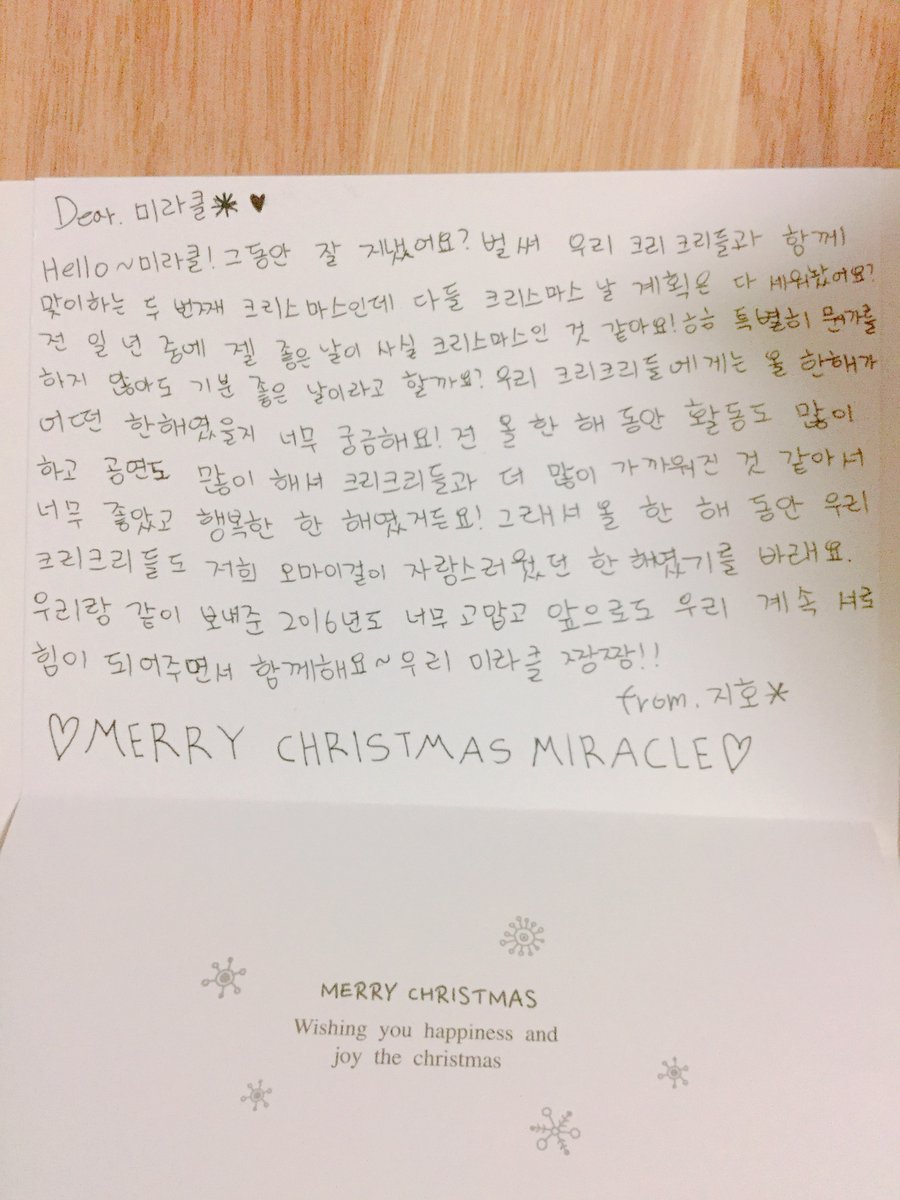 Dear. 미라클✳♥
Hello~미라클! 그동안 잘 지냈어요? 벌써 우리 크리크리들과 함께
맞이하는 두 번째 크리스마스인데 다들 크리스마스 날 계획은 다 세워놨어요?
전 일 년 중에 젤 좋은 날이 사실 크리스마스인 것 같아요! ㅎㅎ 특별히 뭔가를
하지 않아도 기분 좋은 날이라고 할까요? 우리 크리크리들에게는 올 한해가
어떤 한해였을지 너무 궁금해요! 전 올 한 해 동안 활동도 많이
하고 공연도 많이 해서 크리크리들과 더 많이 가까워진 것 같아서
너무 좋았고 행복한 한 해였거든요! 그래서 올 한 해 동안 우리
크리크리들도 저희 오마이걸이 자랑스러웠던 한 해였기를 바래요.
우리랑 같이 보내준 2016년도 너무 고맙고 앞으로도 우리 계속 서로
힘이 되어주면서 함께해요~ 우리 미라클 짱짱!!
from. 지호✳
♡MERRY CHRISTMAS MIRACLE♡
MERRY CHRISTMAS
Wishing you happiness and
joy the christmas